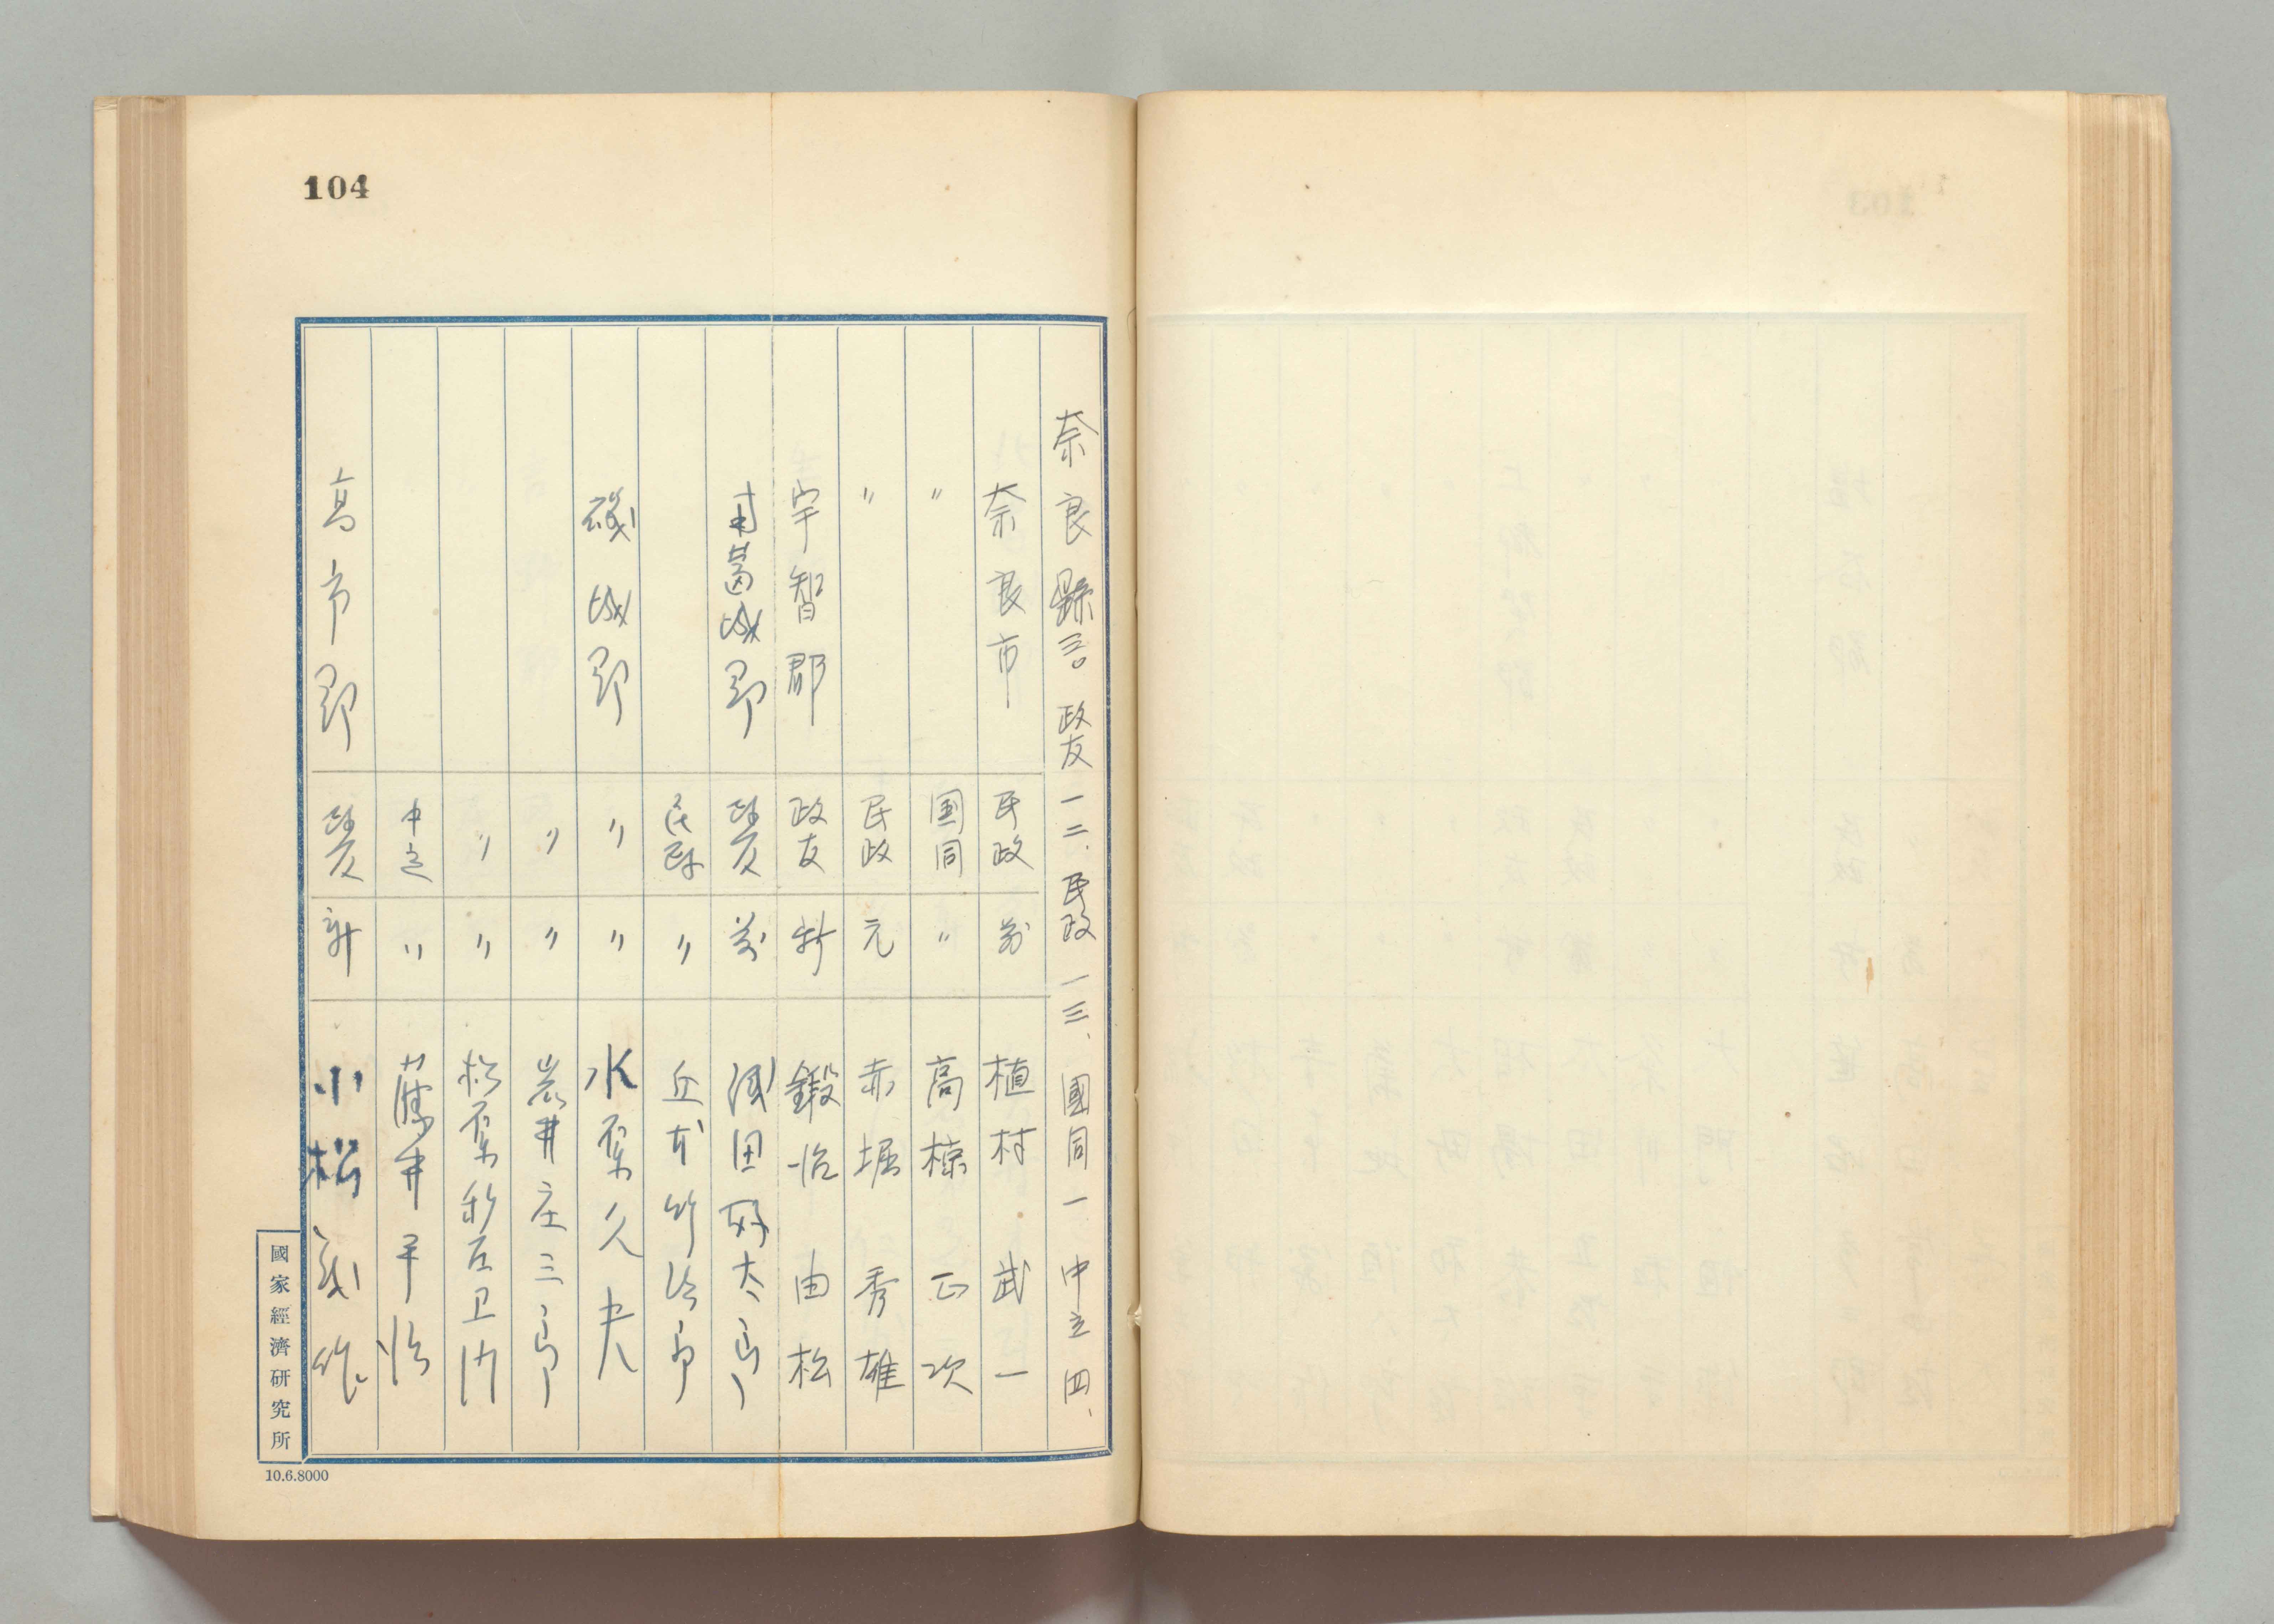 104
奈良縣言 政友一二、民政一三、國同一 中立四、
奈良市 民政 前 植村武一
〃 国同 〃 高椋正次
〃 民政 元 赤堀秀雄
宇智郡 政友 新 鍛冶由松
南葛城郡 政友 前 浅田好太郎
民政 〃 丘本竹治郎
磯城郡 〃 〃 水原久夫
〃 〃 岩井庄三郎
〃 〃 松原利左卫门
中立 〃 藤井平治
高市郡 政友 新 小松 作
國家經濟研究所
10.6.8000